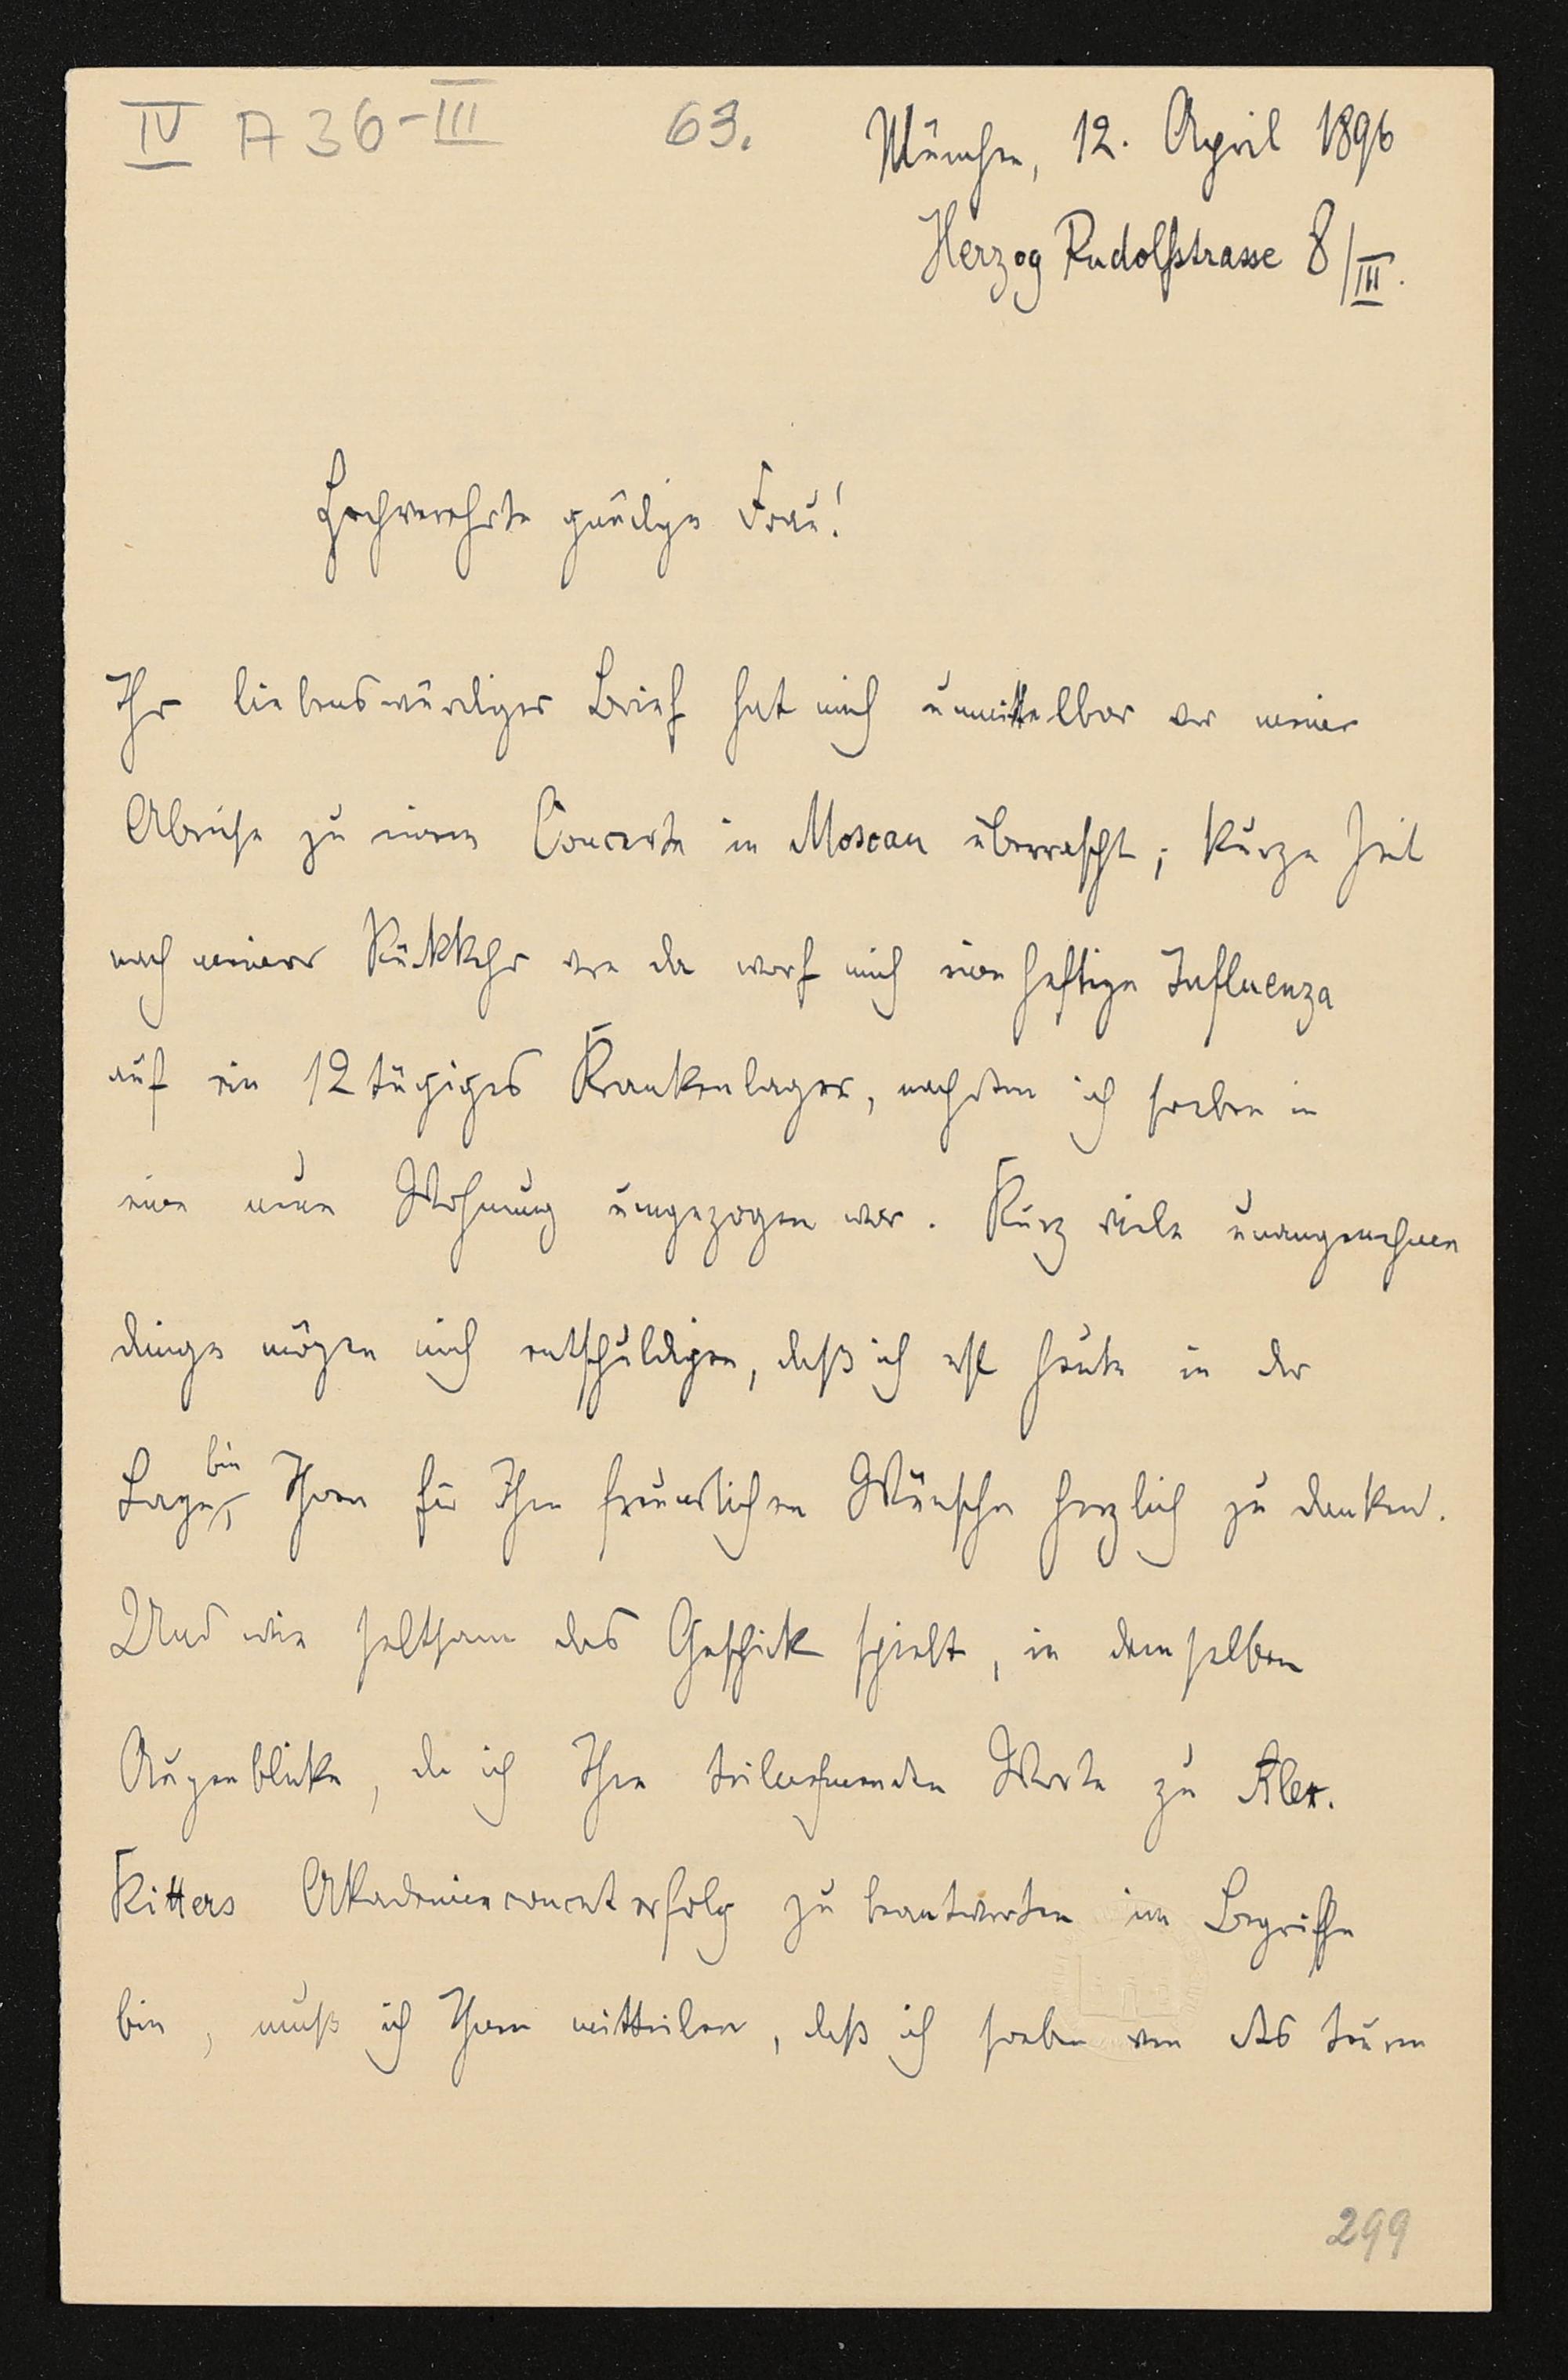 IV A 36-III 63. München, 12. April 1896
Herzog Rudolfstrasse 8/III.
Hochverehrte gnädige Frau!
Ihr liebenswürdiger Brief hat mich unmittelbar vor meiner
Abreise zu einem Concerte in Moscau überrascht; kurze Zeit
nach meiner Rükkehr von da warf mich eine heftige Influenza
auf ein 12 tägiges Krankenlager, nachdem ich soeben in
eine neue Wohnung umgezogen war. Kurz viele unangenehme
Dinge mögen mich entschuldigen, daß ich erst heute in der
Lage bin, Ihnen für Ihre freundlichen Wünsche herzlich zu danken.
Und wie seltsam das Geschick spielt, in demselben
Augenblicke, da ich Ihre teilnehmenden Worte zu Alex.
Ritters Akademieconcerterfolg zu beantworten im Begriffe
bin, muß ich Ihnen mitteilen, daß ich soeben von des teuren
299